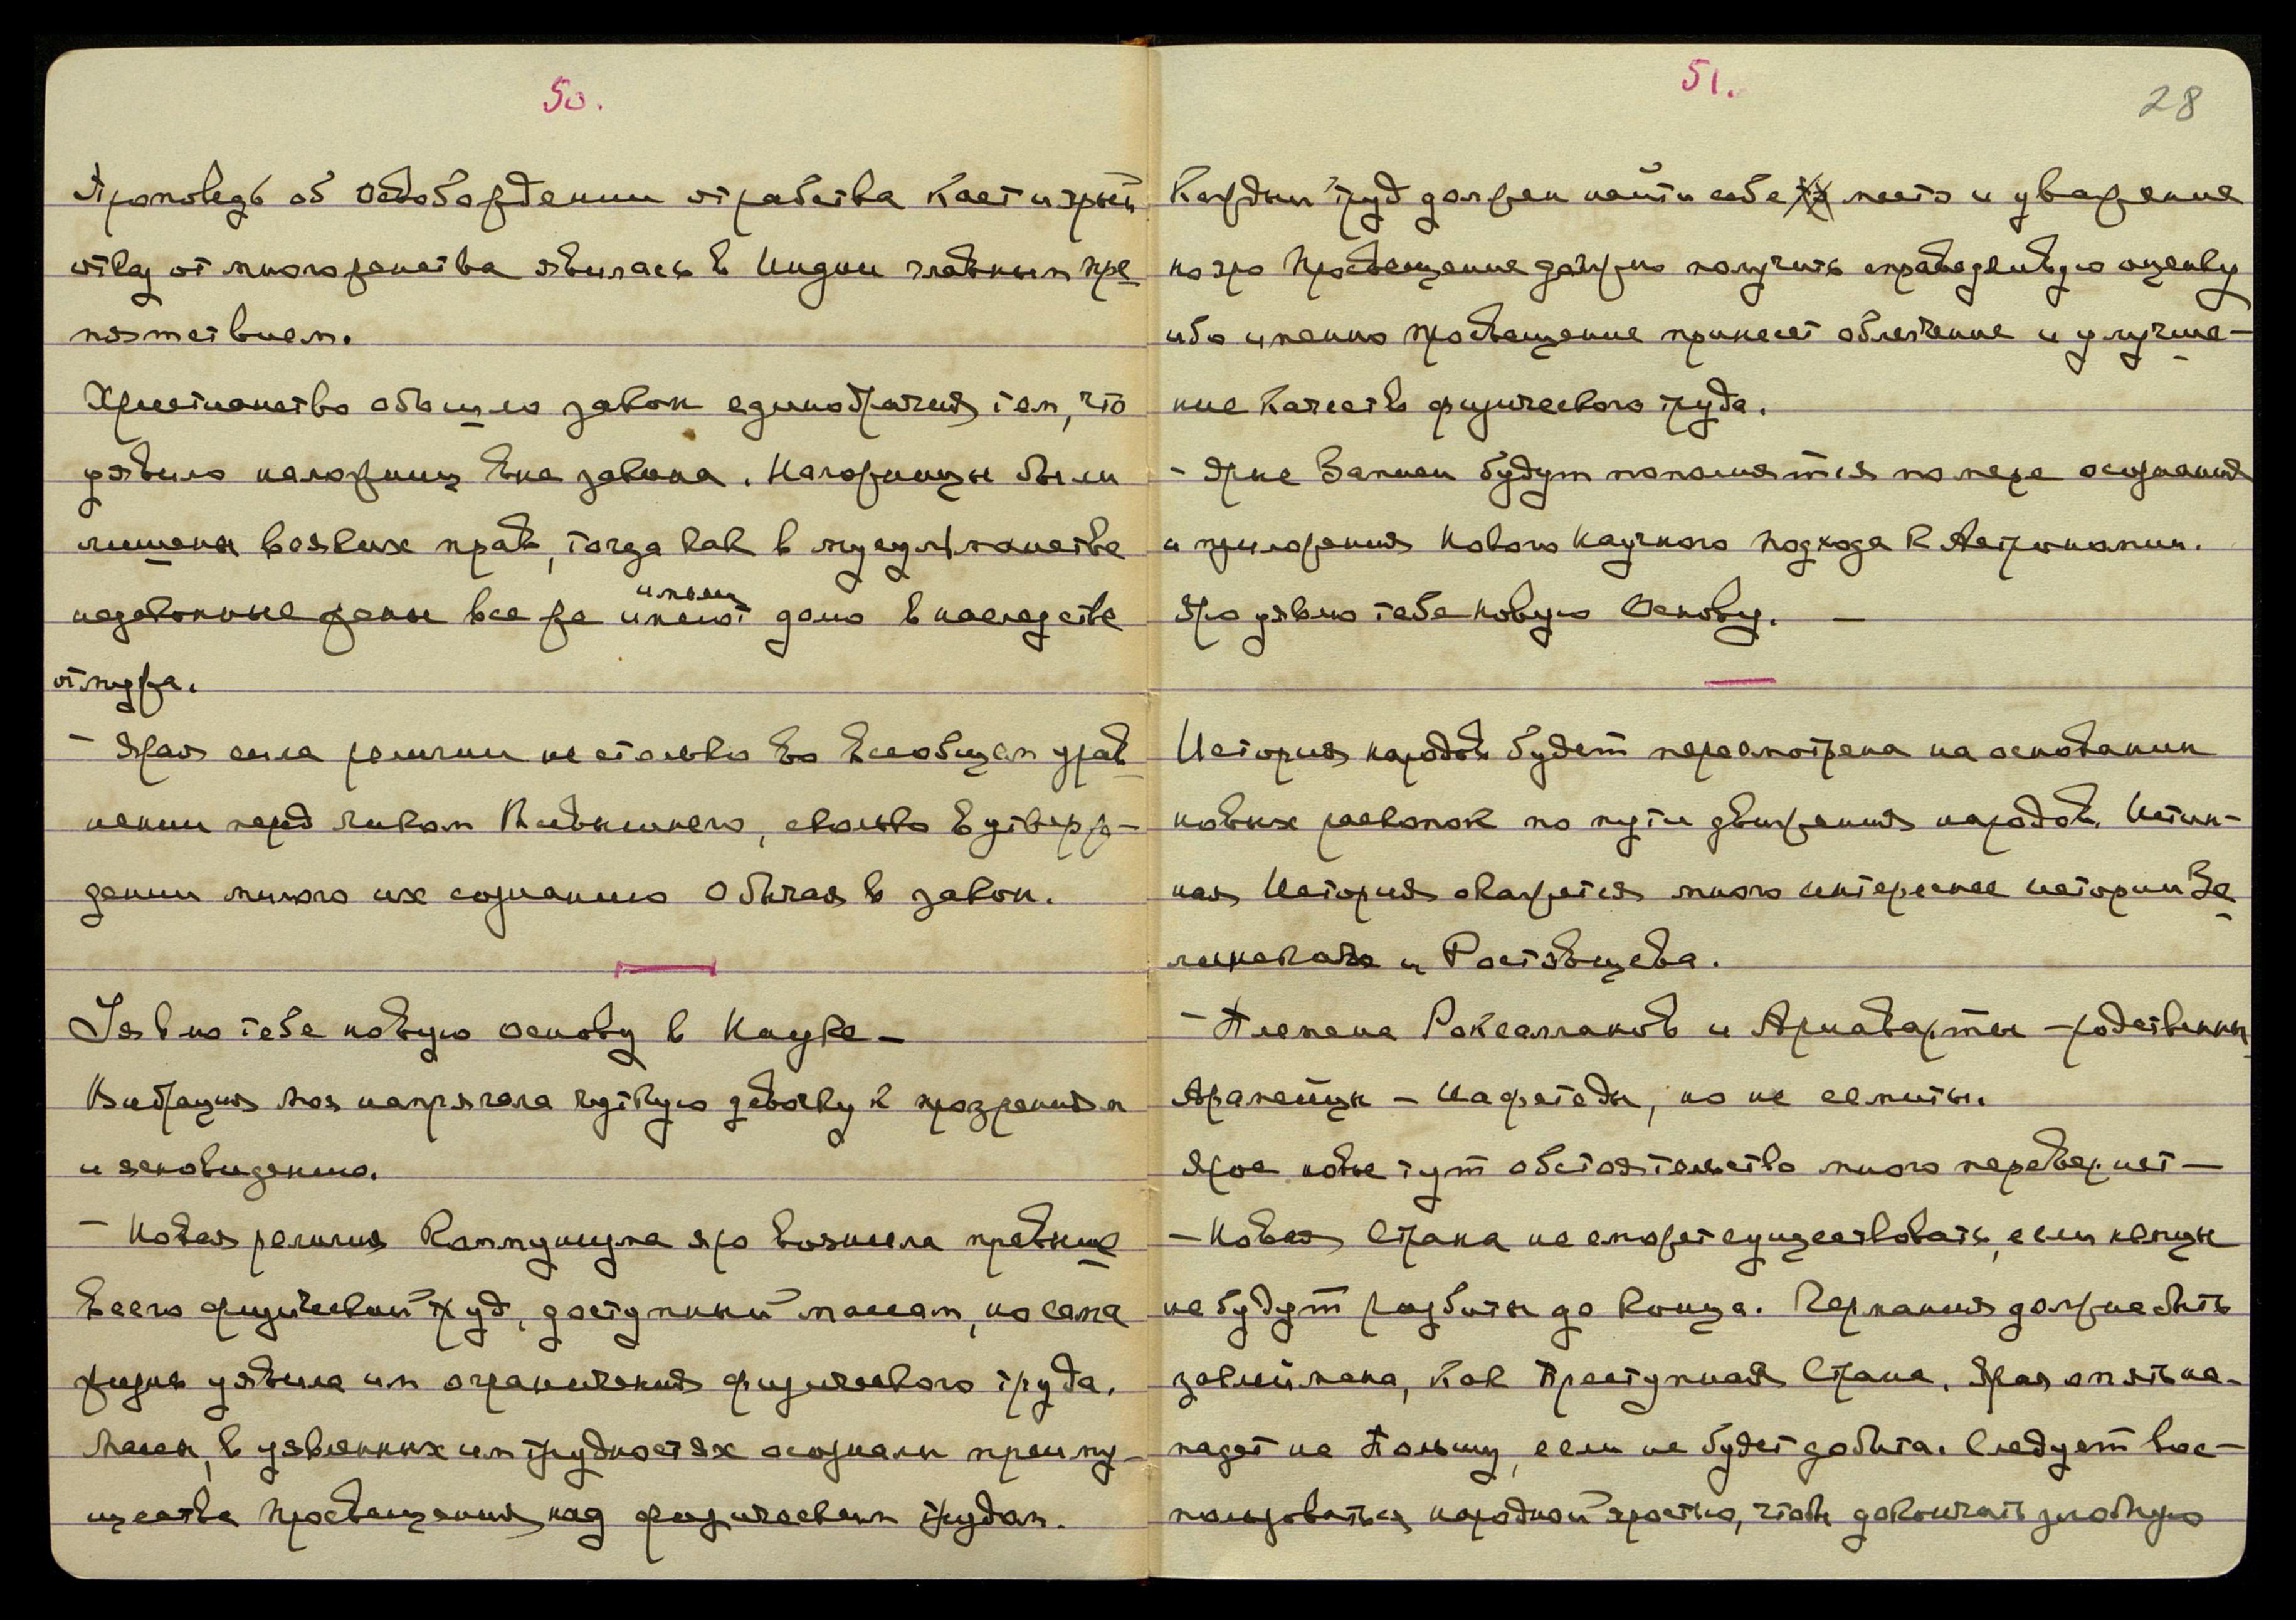 50.
Проповедь об освобождении от рабства каст и
отказ от многоженства явилась в Индии главным пре
пятствием.
Христианство обошло закон единобрачия тем, что
уявило наложниц вне закона. Наложницы были
лишены всяких прав, тогда как в мусульманстве
незаконные жены все же имеют имели долю в наследстве
от мужа.
– Ярая сила религии не столько во всеобщем урав
нении перед ликом Всевышнего, сколько в утверж-
дении милого их сознанию обычая в закон.
Уявлю тебе новую основу в Науке –
Вибрация моя напрягала чуткую девочку к прозрениям
и ясновидению.
– Новая религия Коммунизма яро вознесла превыше
всего физический труд, доступный массам, но сама
жизнь уявила им ограничения физического труда.
Массы, в уявленных им трудностях осознали преиму-
щества просвещения над физическим трудом.
51.
28
Каждый труд должен найти себе место и уважение
но яро Просвещение должно получить справедливую оценку
ибо именно просвещение принесет облегчение и улучше-
ние качеств физического труда.
– Ярые Записи будут пополняться по мере осознания
и приложения Нового Научного подхода к Астрономии.
Яро уявлю тебе новую Основу. –
История народов будет пересмотрена на основании
новых раскопок по пути движения народов. Истин-
ная История окажется много интереснее истории Зе
линского и Ростовцева.
– Племена Роксаланов и Ариаварты – родственны
Арамейцы – Иафетеды, но не семиты.
Ярое новые тут обстоятельство много перевернет –
– Новая Страна не сможет существовать, если немцы
не будут разбиты до конца. Германия должна быть
заклеймена, как Преступная Страна. Ярая опять на-
падет на Польшу, если не будет добита. Следует вос-
пользоваться народной яростью, чтобы докончить злобную